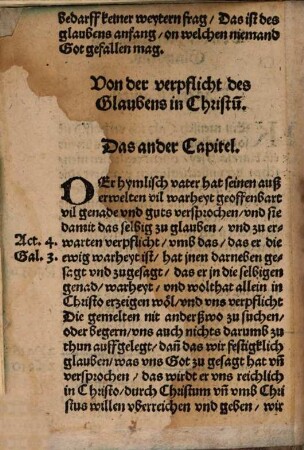 bedarff keiner weytern frag / Das ist des
glaubens anfang / on welchen niemand
Got gefallen mag.
Von der verpflicht des
Glaubens in Christū.
Das ander Capitel.
DEr hymlisch vater hat seinen auß
erwelten vil warheyt geoffenbart
vil genade vnd guts versprochen / vnd sie
damit das selbig zu glauben / vnd zu er=
Act. 4. warten verpflicht / vmb das / das er die
Gal. 3. ewig warheyt ist / hat jnen darneben ge=
sagt vnd zugesagt / das er in die selbigen
genad / warheyt / vnd wolthat allein in
Christo erzeigen wöl / vnd vns verpflicht
Die gemelten nit anderßwo zu suchen /
oder begern / vns auch nichts darumb zu
thun auffgelegt / dañ das wir festigklich
glauben / was vns Got zu gesagt hat vñ
versprochen / das wirdt er vns reichlich
in Christo / durch Christum vñ vmb Chri
stus willen vberreichen vnd geben / wir